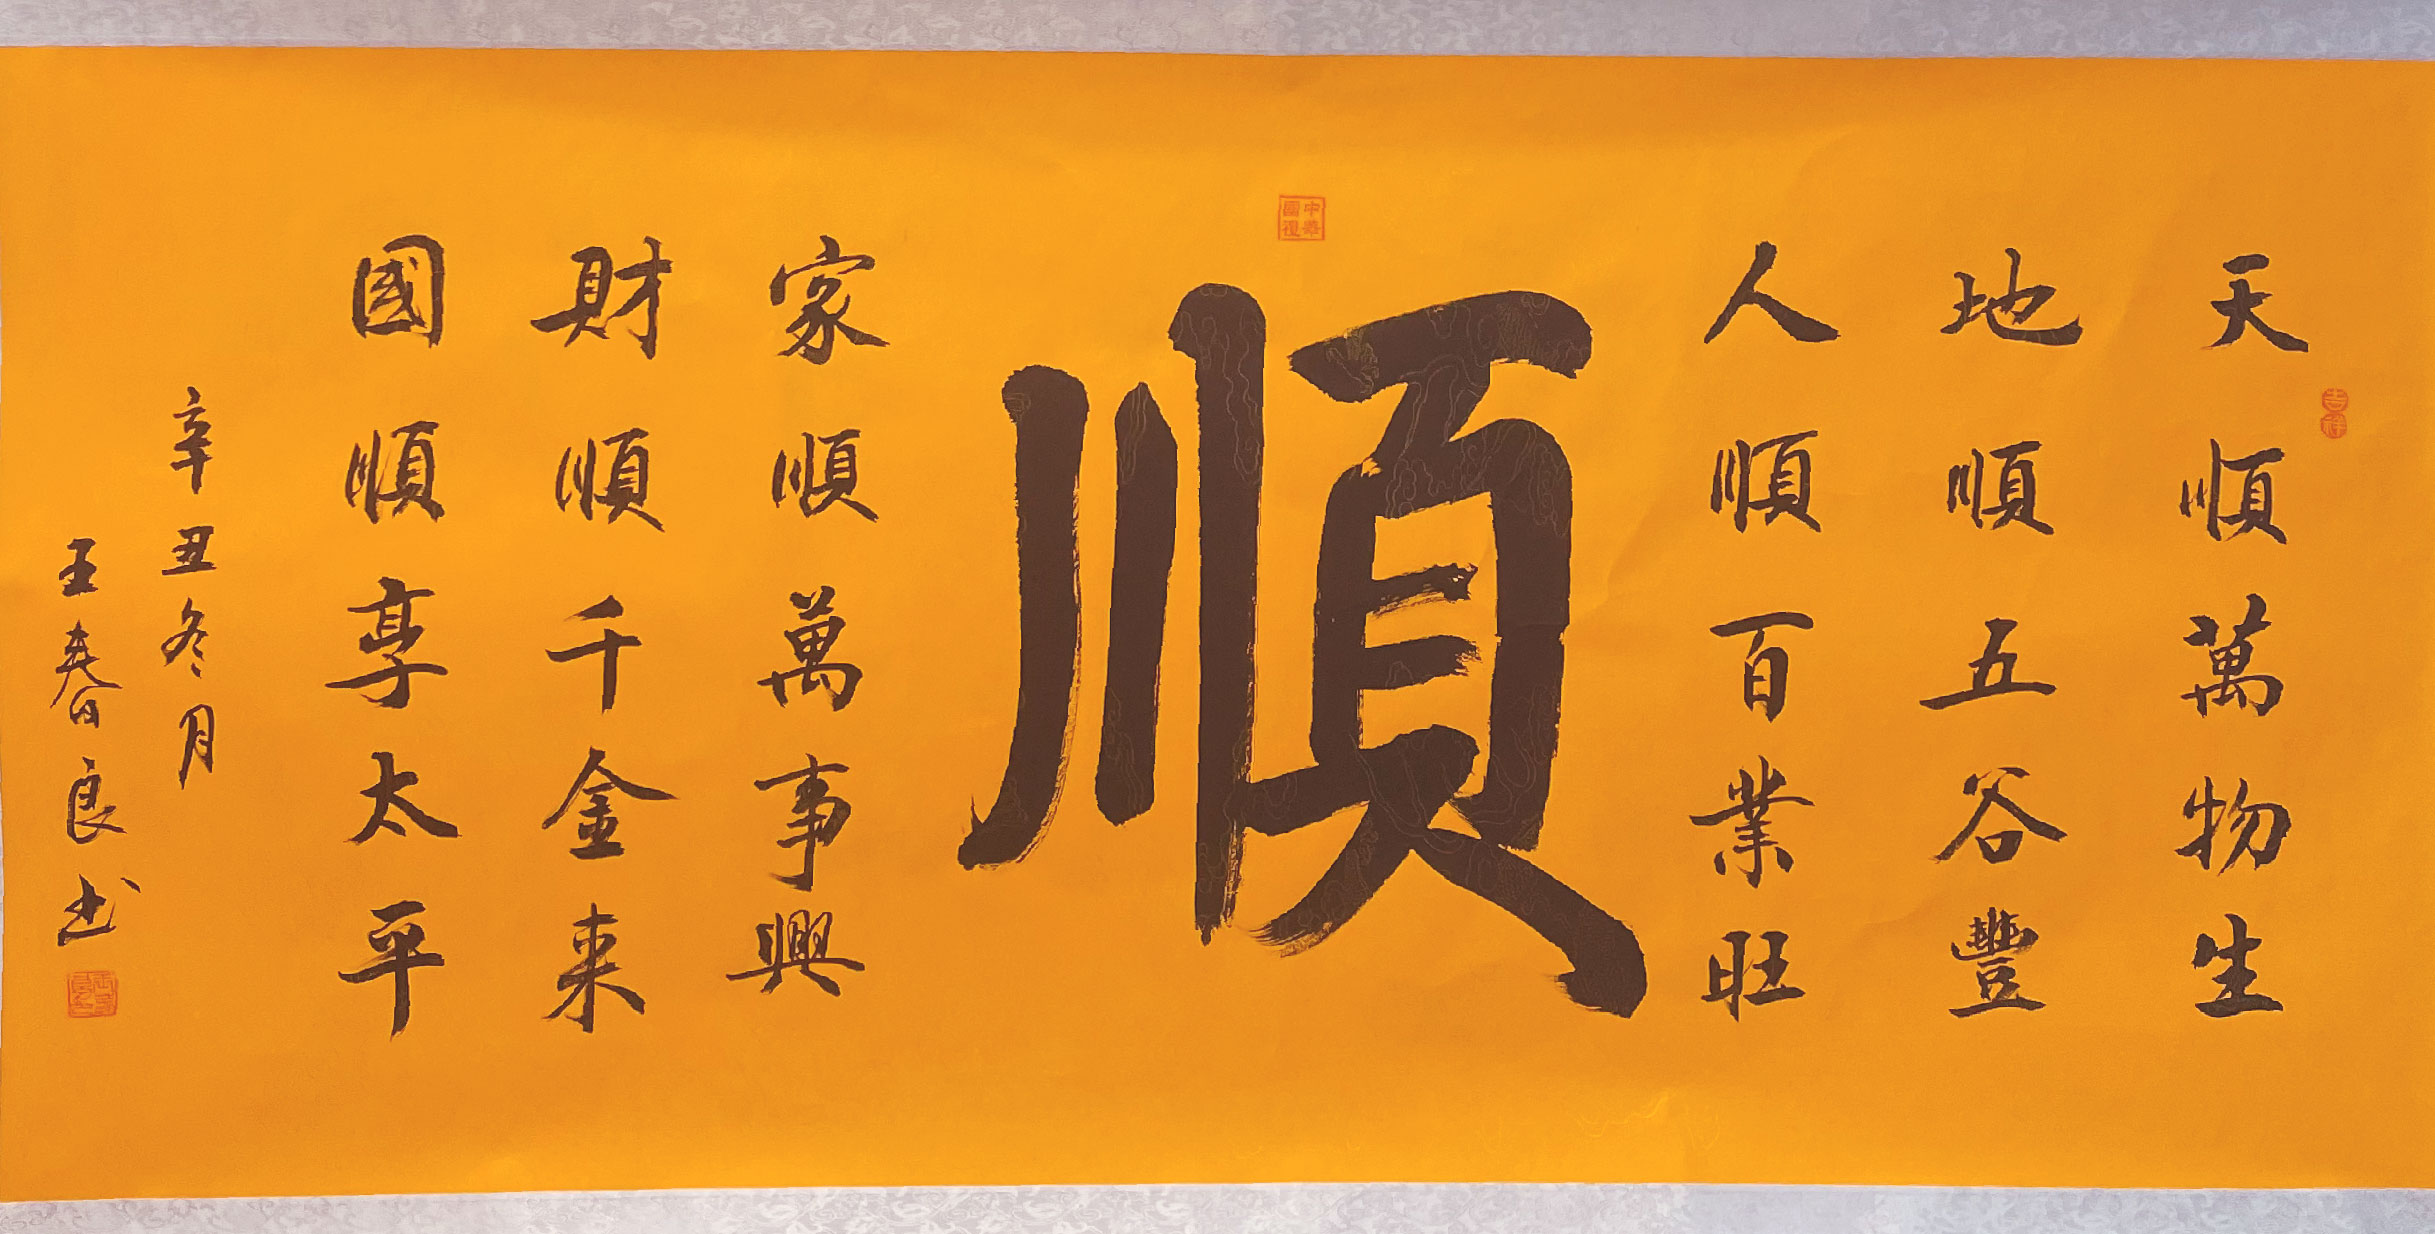 吉祥
天順萬物生
地順五谷豐
人順百業旺
中華國禮
順
家順萬事興
財順千金来
國順享太平
辛丑冬月
王春良书